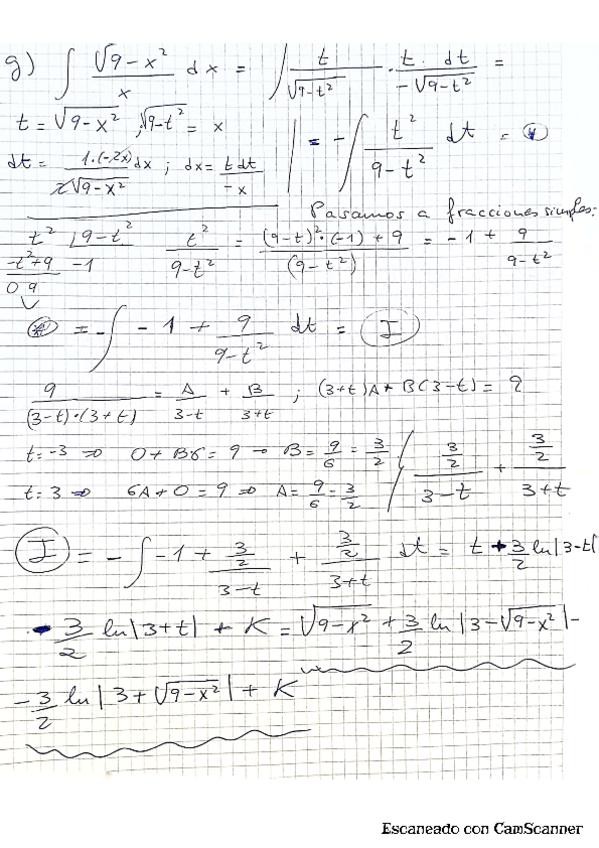 g) ∫ √(9-x²)/x dx = ∫ t/√(9-t²) · t·dt/-√(9-t²) =
t = √(9-x²), √(9-t²) = x | = -∫ t²/(9-t²) dt = *
dt = 1·(-2x)/(2√(9-x²)) dx ; dx = t dt/-x
Pasamos a fracciones simples:
t² |9-t² t²/(9-t²) = ((9-t)²·(-1)+9)/(9-t²) = -1 + 9/(9-t²)
-t²+9 -1
0 9
* = -∫ -1 + 9/(9-t²) dt = I
9/((3-t)·(3+t)) = A/(3-t) + B/(3+t) ; (3+t)A + B(3-t) = 9
t=-3 ⇒ 0+B6=9 → B = 9/6 = 3/2 / (3/2)/(3-t) + (3/2)/(3+t)
t=3 ⇒ 6A+0=9 ⇒ A = 9/6 = 3/2
I = -∫ -1 + (3/2)/(3-t) + (3/2)/(3+t) dt = t + 3/2 ln|3-t|
- 3/2 ln|3+t| + K = √(9-x²) + 3/2 ln|3-√(9-x²)| -
- 3/2 ln|3+√(9-x²)| + K
Escaneado con CamScanner